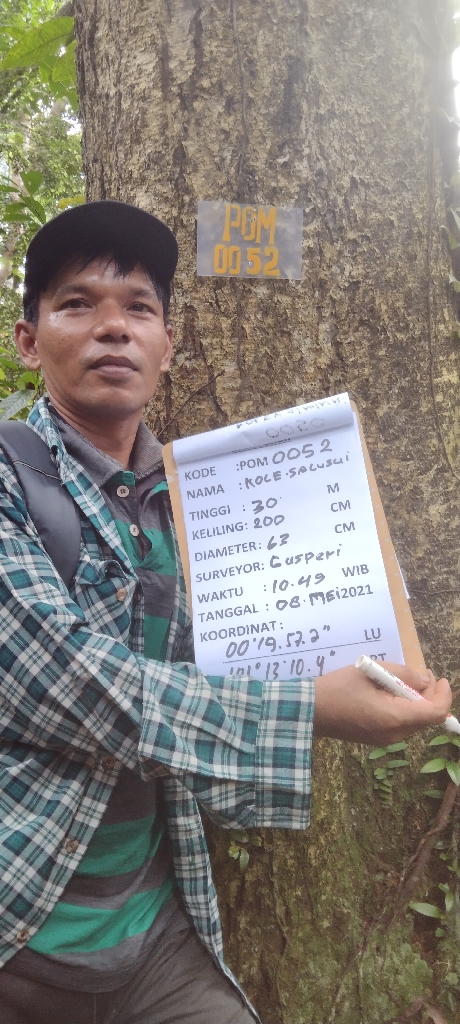 POM
0052
KODE :POM 0052
NAMA :KOLE.SALUSUI
TINGGI : 30 M
KELILING: 200 CM
DIAMETER: 63 CM
SURVEYOR: Gusperi
WAKTU : 10.49 WIB
TANGGAL : 08.MEI 2021
KOORDINAT :
00°19.57.2" LU
101°13'10.4" BT